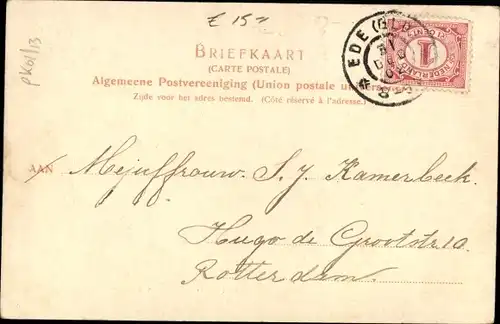 £ 15,,
BRIEFKAART
(CARTE POSTALE)
Algemeene Postvereeniging (Union postale universelle)
Zijde voor het adres bestemd. (Côté réservé à l'adresse.)
EDE (GLD
NEDERLAND
1
AAN Mejuffrouw. S. J. Kamerbeek.
Hugo de Grootstr. 10
Rotterdam.